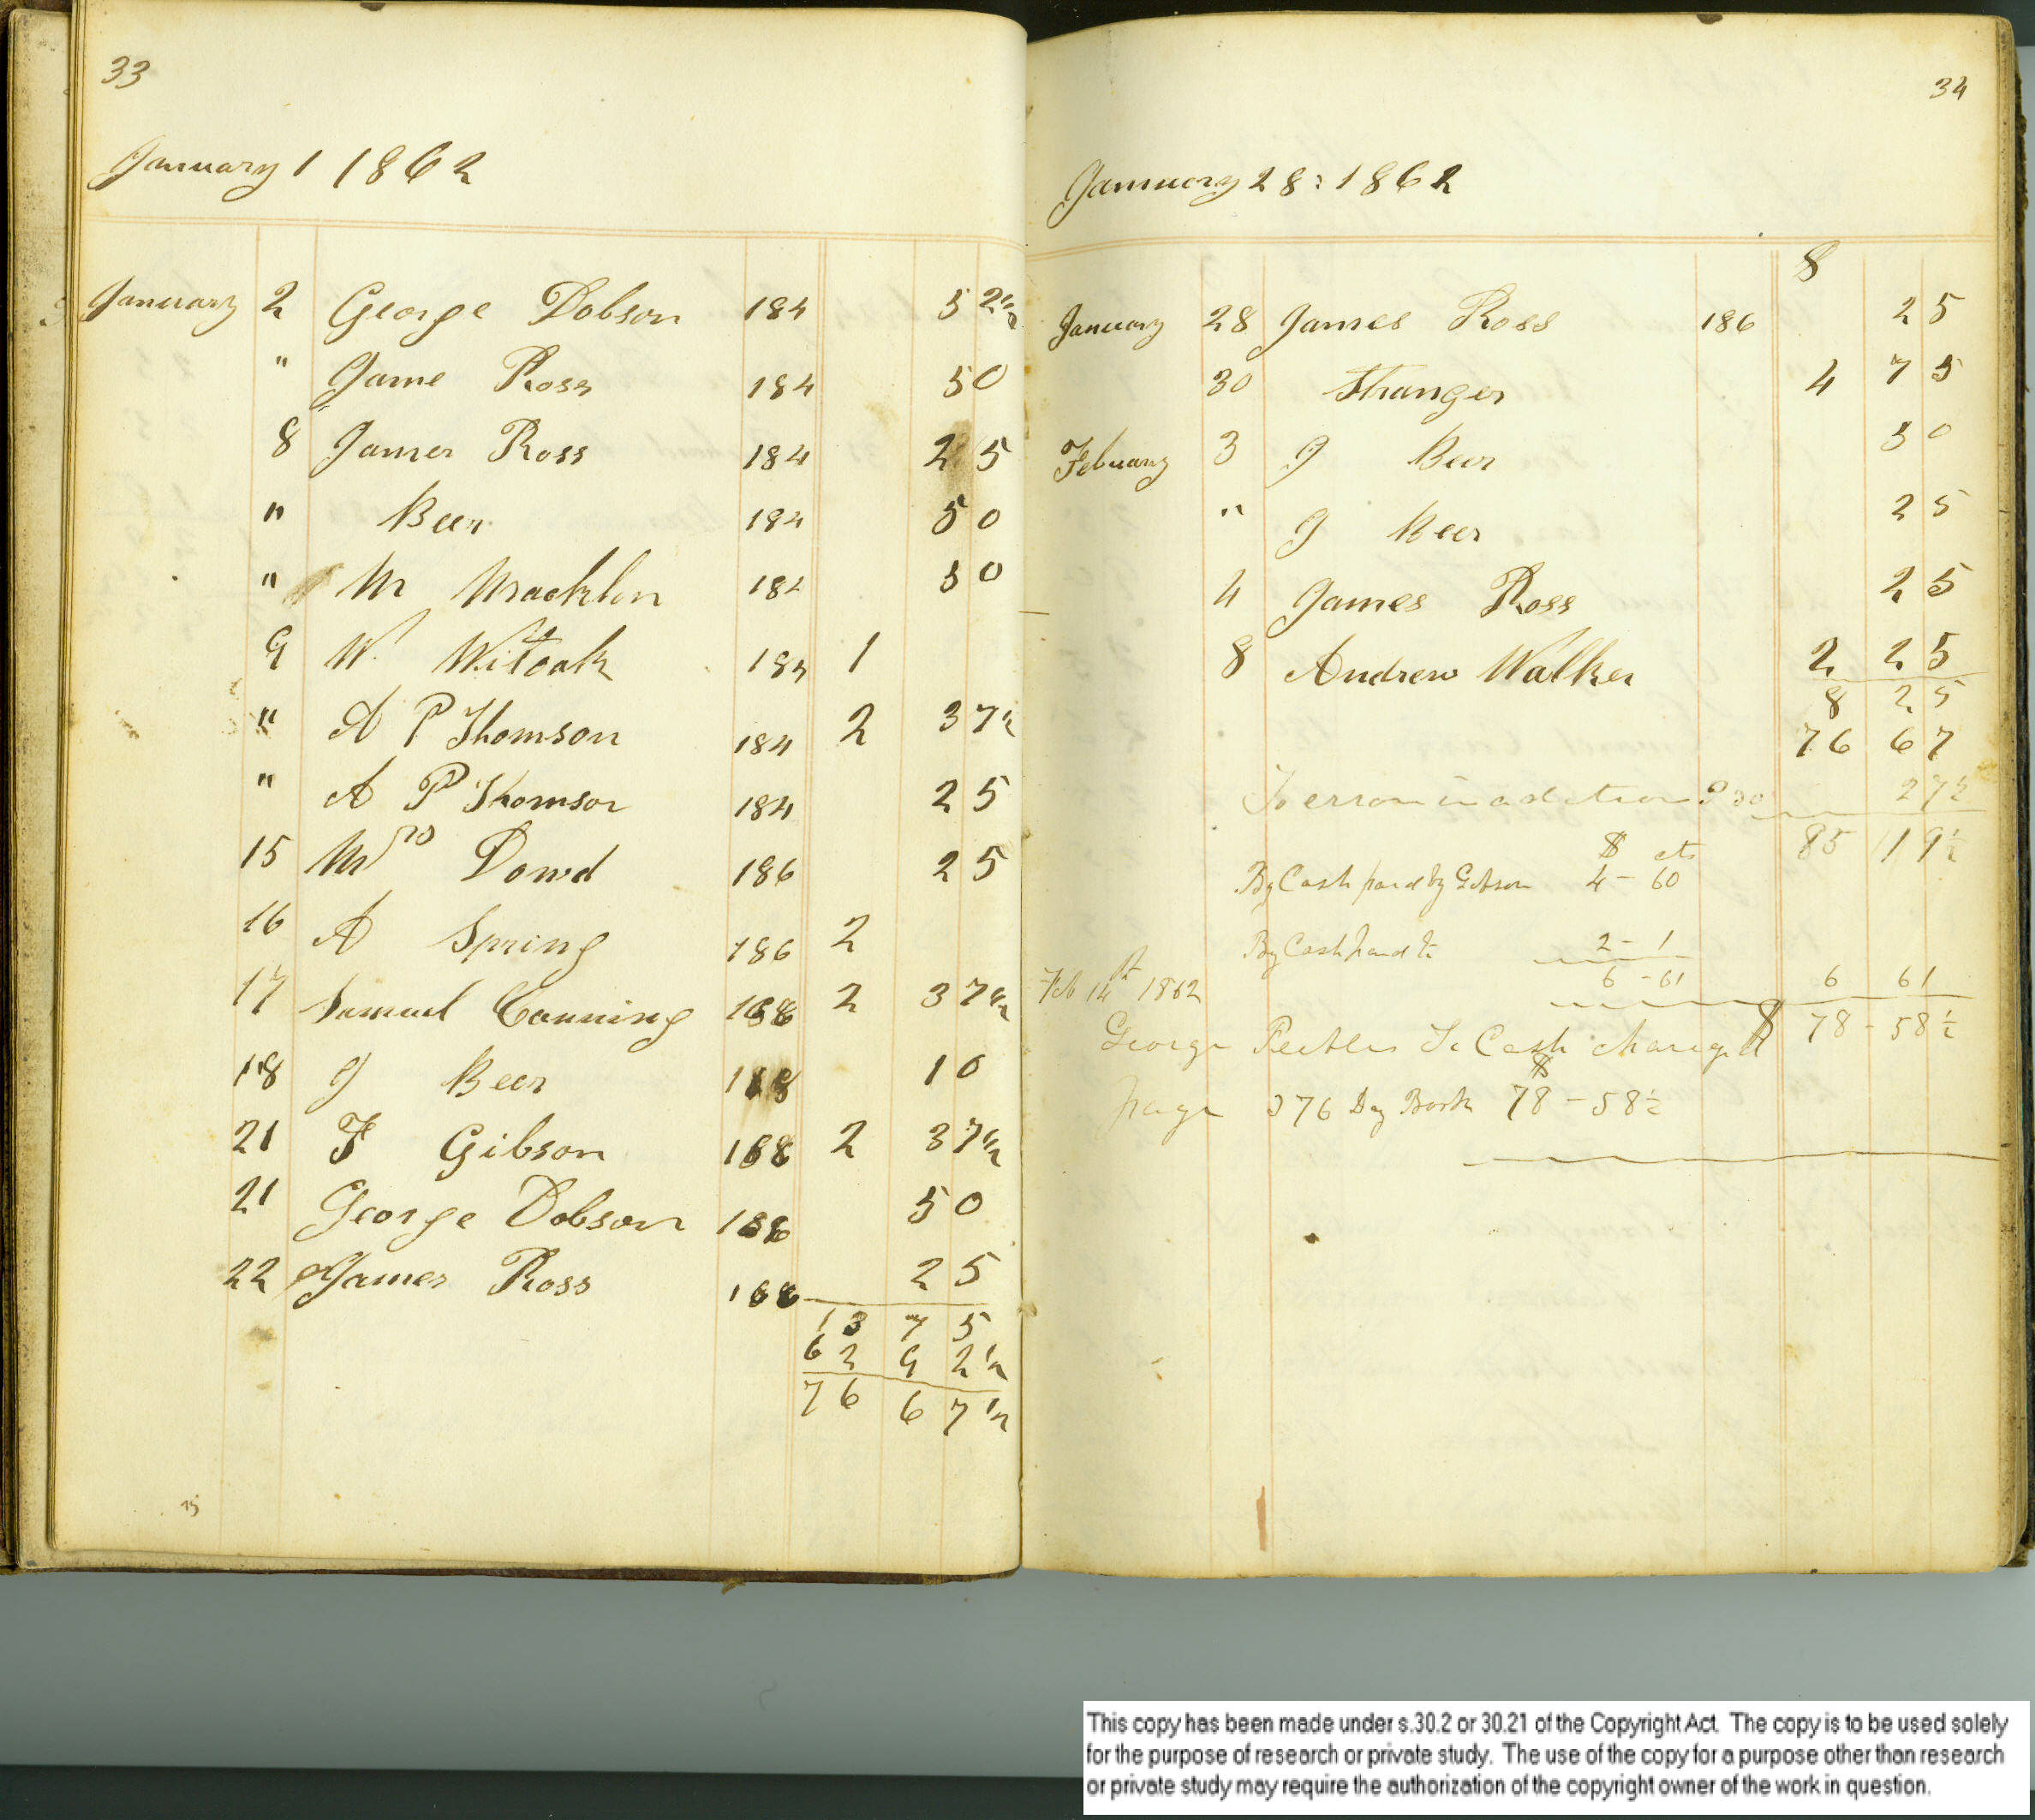 33
January 1 1862
January 2 George Dobson 184 52 1/2
" Jame Ross 184 50
8 James Ross 184 25
" Beer 184 50
" Mr Mracklen 184 50
9 W. Witcak 184 1
" A P Thomson 184 2 37 1/2
" A P Thomson 184 25
15 Mrs Dowd 186 25
16 A Spring 186 2
17 Samuel Canning 186 2 37 1/2
18 J Beer 10
21 F Gibson 186 2 37 1/2
21 George Dobson 186 50
22 James Ross 186 25
13 75
62 92 1/2
76 67 1/2
34
January 28: 1862
$
January 28 James Ross 186 25
30 Stranger 4 75
February 3 J Beer 50
" J Beer 25
4 James Ross 25
8 Andrew Walker 2 25
8 25
76 67
To error in adition P 30 27 1/2
85 19 1/2
$ cts
By Cash paid by Gibson 4 - 60
By Cash paid 2 - 1
6 - 61 6 61
Feb 14th 1862
George Peebles To Cash charged $ 78 - 58 1/2
page 376 Day Book $ 78 - 58 1/2
This copy has been made under s.30.2 or 30.21 of the Copyright Act. The copy is to be used solely
for the purpose of research or private study. The use of the copy for a purpose other than research
or private study may require the authorization of the copyright owner of the work in question.